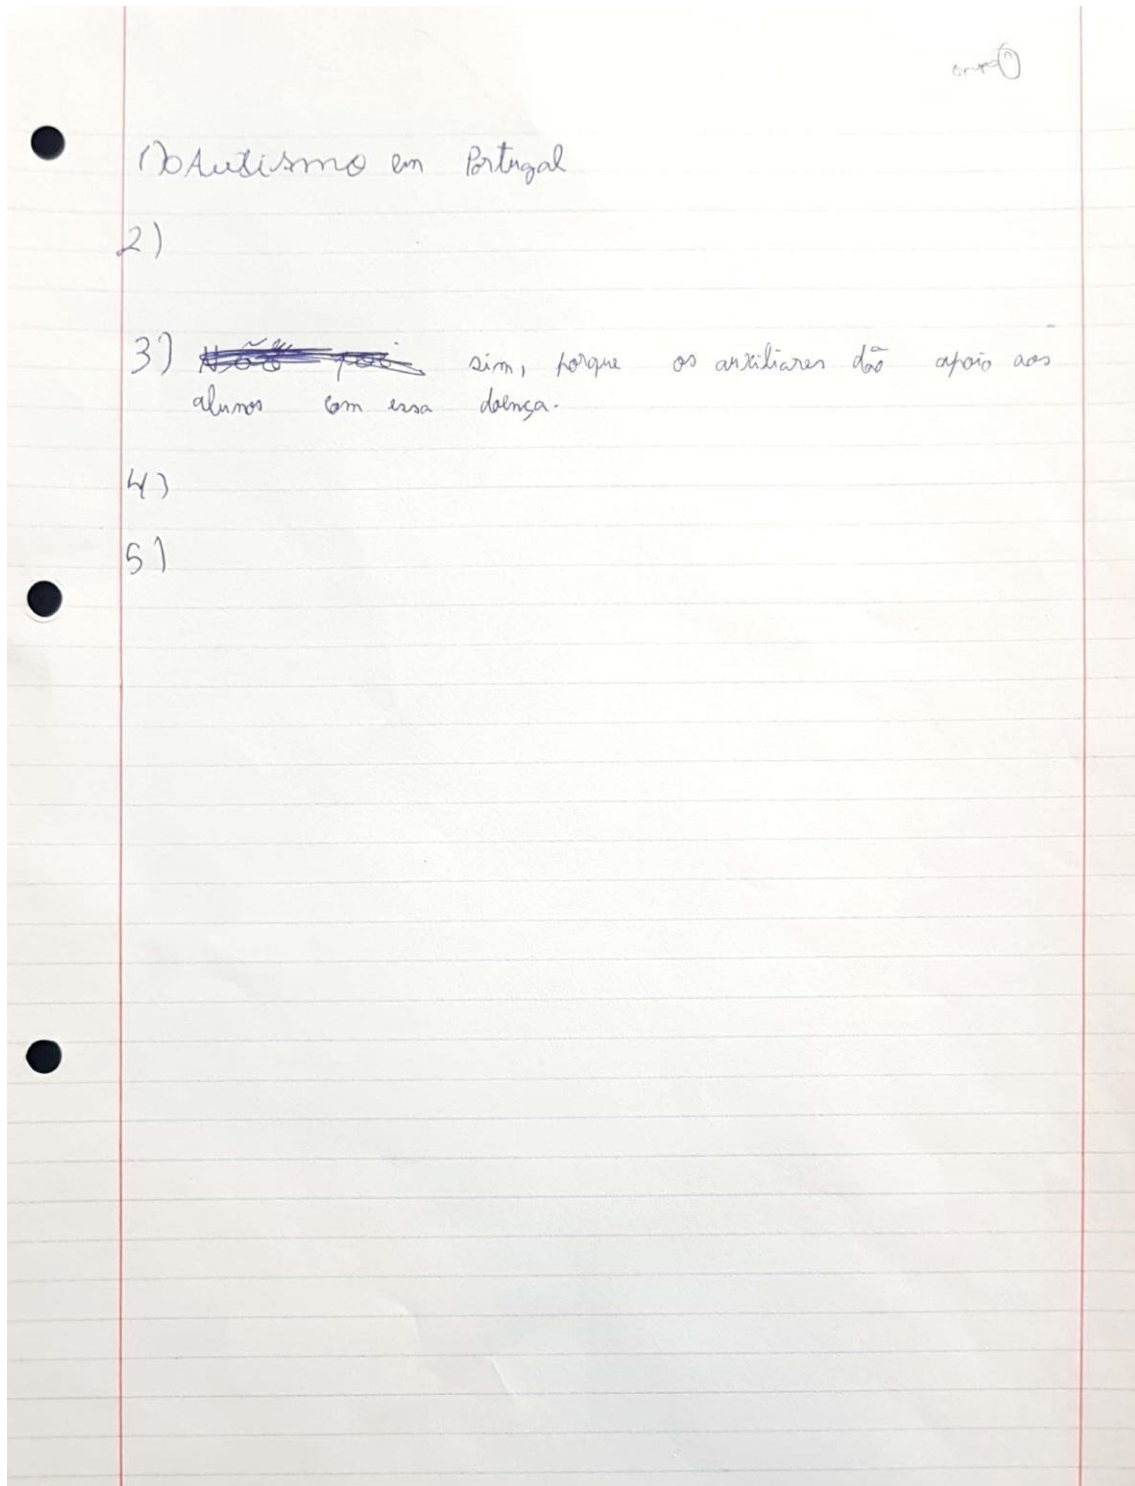 1) o Autismo em Portugal
2)
3) sim, porque os auxiliares dão apoio aos
alunos com essa doença.
4)
5)